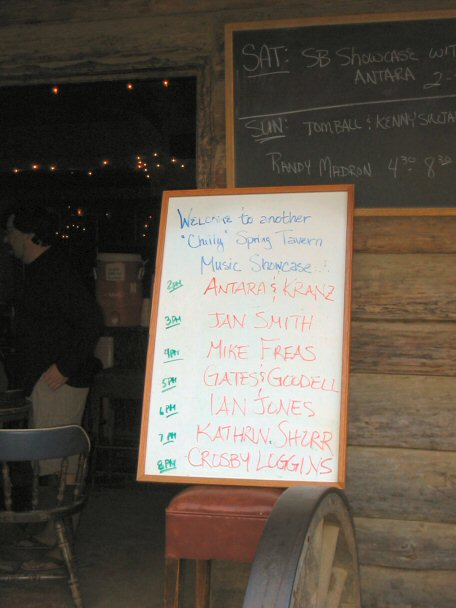 SAT: SB SHOWCASE WITH
ANTARA 2
SUN: TOM BALL & KENNY SULTAN
RANDY MADRON 4³⁰ 8³⁰
WELCOME to another
"Chilly" Spring Tavern
Music Showcase...
2PM ANTARA & KRANZ
3PM JAN SMITH
4PM MIKE FREAS
5PM GATES & GOODELL
6PM IAN JONES
7PM KATHRYN SHORR
8PM CROSBY LOGGINS